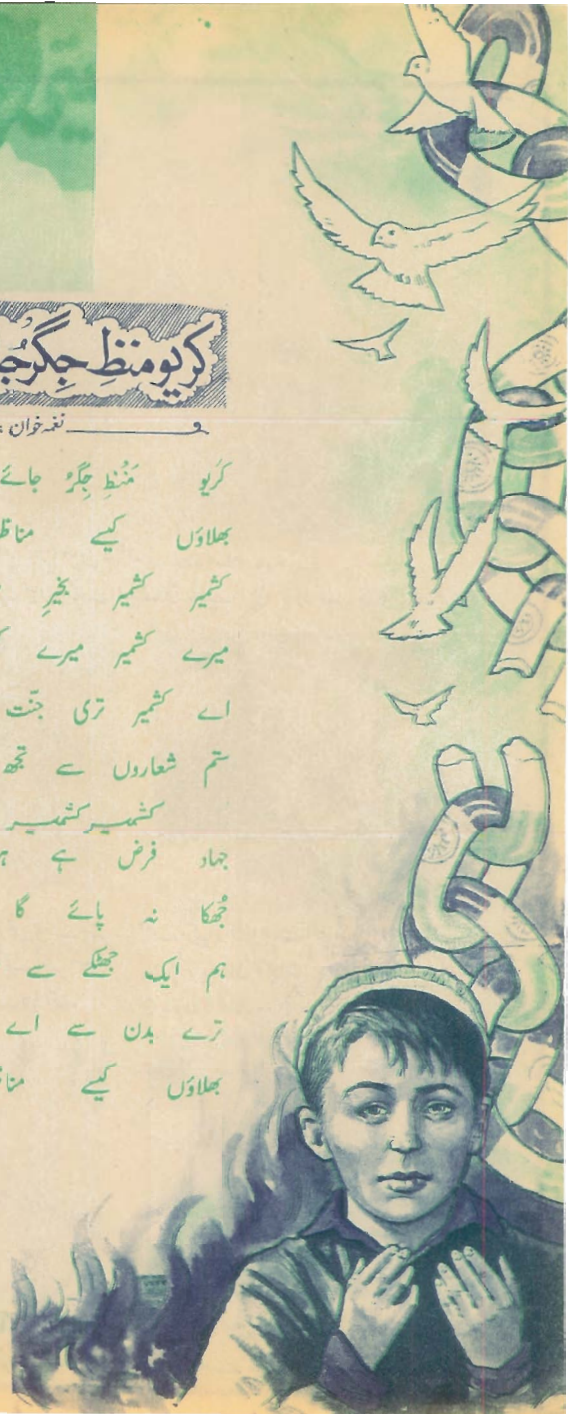 کریو منظِ جِگر
نغمہ خوان
کریو منظِ جِگر جائے
بھلاؤں کیسے
کشمیر کشمیر بخیرِ
میرے کشمیر میرے
اے کشمیر تری جنّت
ستم شعاروں سے تجھ
کشمیر کشمیر
جہاد فرض ہے
جُھکا نہ پائے گا
ہم ایک جھٹکے سے
ترے بدن سے اے
بھلاؤں کیسے